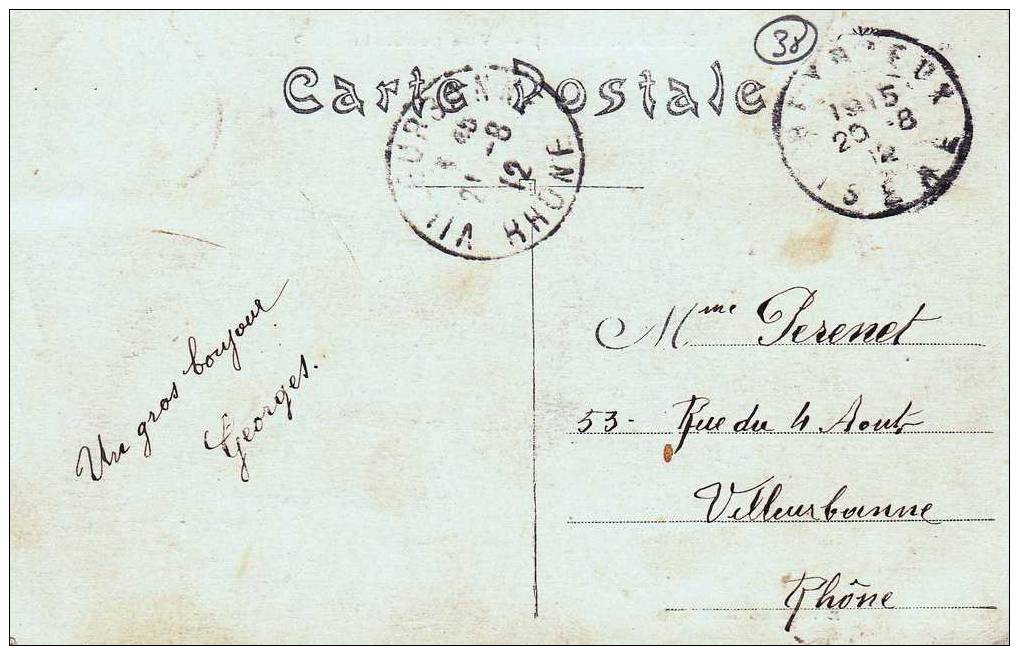 38
Carte Postale
HEYRIEUX
1915
20 -8
12
ISERE
8 -8
21 12
RHONE
Un gros bonjour
Georges.
Mme Perenet
53- Rue du 4 Aout
Villeurbanne
Rhône